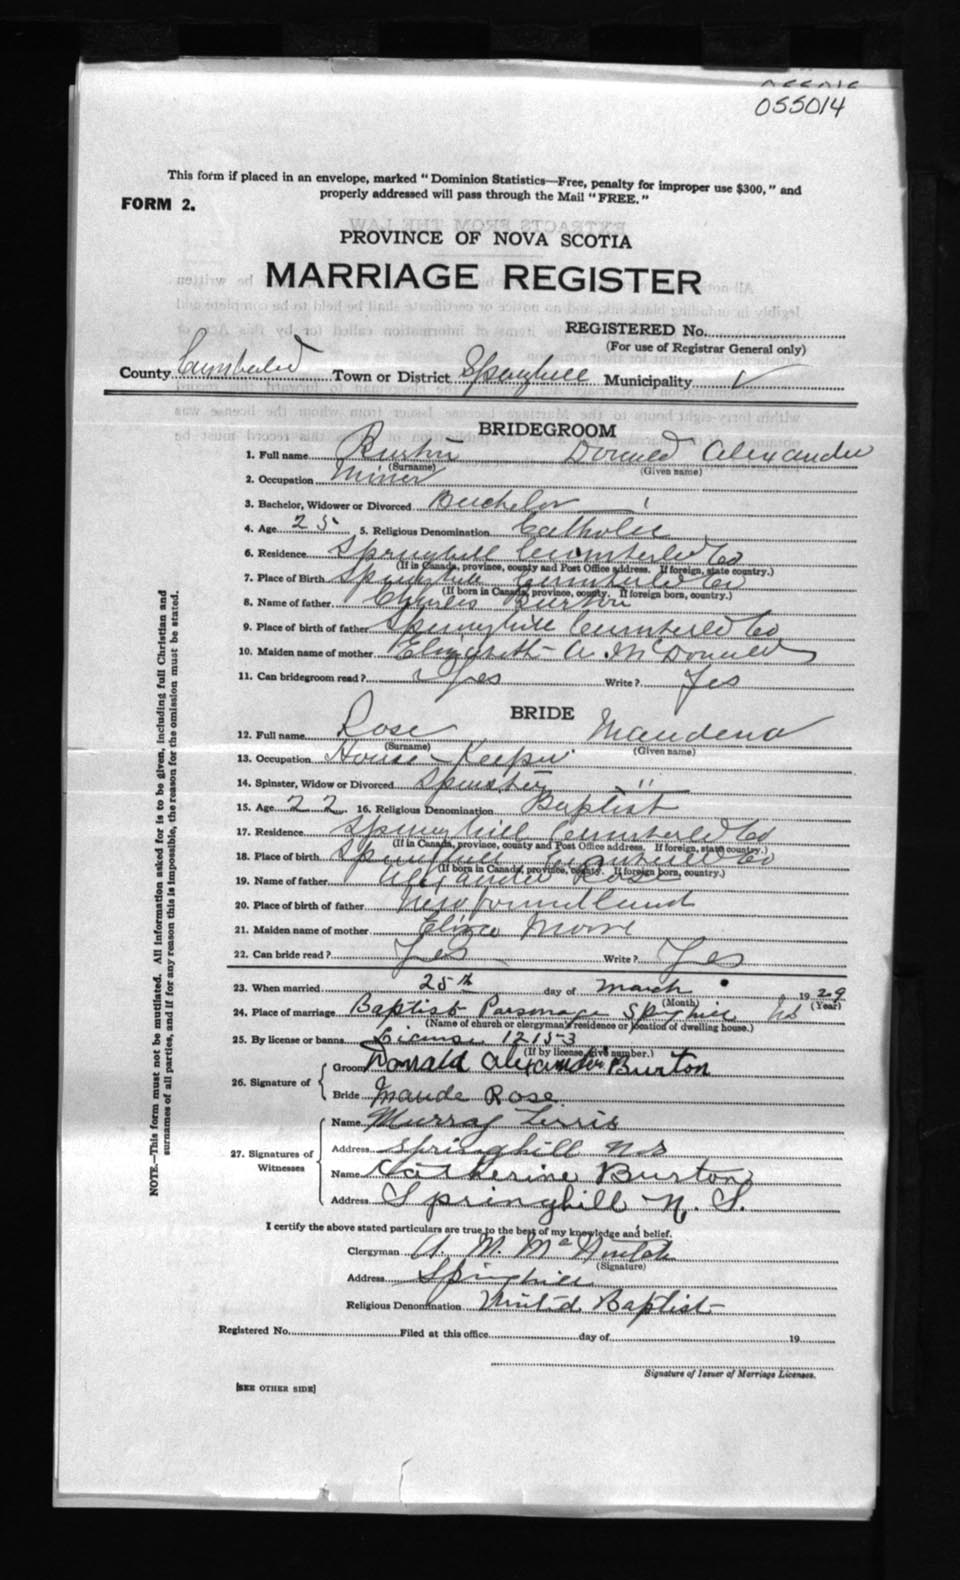 055014
This form if placed in an envelope, marked "Dominion Statistics—Free, penalty for improper use $300," and
properly addressed will pass through the Mail "FREE."
FORM 2.
PROVINCE OF NOVA SCOTIA
MARRIAGE REGISTER
REGISTERED No.
(For use of Registrar General only)
County Cumberland Town or District Springhill Municipality ✓
BRIDEGROOM
1. Full name Burton Donald Alexander
(Surname) (Given name)
2. Occupation Miner
3. Bachelor, Widower or Divorced Bachelor
4. Age 25 5. Religious Denomination Catholic
6. Residence Springhill Cumberled Co
(If in Canada, province, county and Post Office address. If foreign, state country.)
7. Place of Birth Springhill Cumberled Co
(If born in Canada, province, county. If foreign born, country.)
8. Name of father Charles Burton
9. Place of birth of father Springhill Cumberled Co
10. Maiden name of mother Elizabeth A McDonald
11. Can bridegroom read? Yes Write? Yes
BRIDE
12. Full name Rose Maudena
(Surname) (Given name)
13. Occupation House Keeper
14. Spinster, Widow or Divorced Spinster "
15. Age 22 16. Religious Denomination Baptist
17. Residence Springhill Cumberled Co
(If in Canada, province, county and Post Office address. If foreign, state country.)
18. Place of birth Springhill Cumberled Co
(If born in Canada, province, county. If foreign born, country.)
19. Name of father Alexander Rose
20. Place of birth of father Newfoundland
21. Maiden name of mother Eliza Moore
22. Can bride read? Yes Write? Yes
23. When married 25th day of March 1929
(Month) (Year)
24. Place of marriage Baptist Parsonage Springhill NS
(Name of church or clergyman's residence or location of dwelling house.)
25. By license or banns License 12153
(If by license, give number.)
26. Signature of
Groom Donald Alexander Burton
Bride Maude Rose
27. Signatures of Witnesses
Name Murray
Address Springhill N S
Name Catherine Burton
Address Springhill N. S.
I certify the above stated particulars are true to the best of my knowledge and belief.
Clergyman A. M.
(Signature)
Address Springhill
Religious Denomination United Baptist
Registered No. Filed at this office day of 19
Signature of Issuer of Marriage Licenses.
[SEE OTHER SIDE]
NOTE.—This form must not be mutilated. All information asked for is to be given, including full Christian and
surnames of all parties, and if for any reason this is impossible, the reason for the omission must be stated.